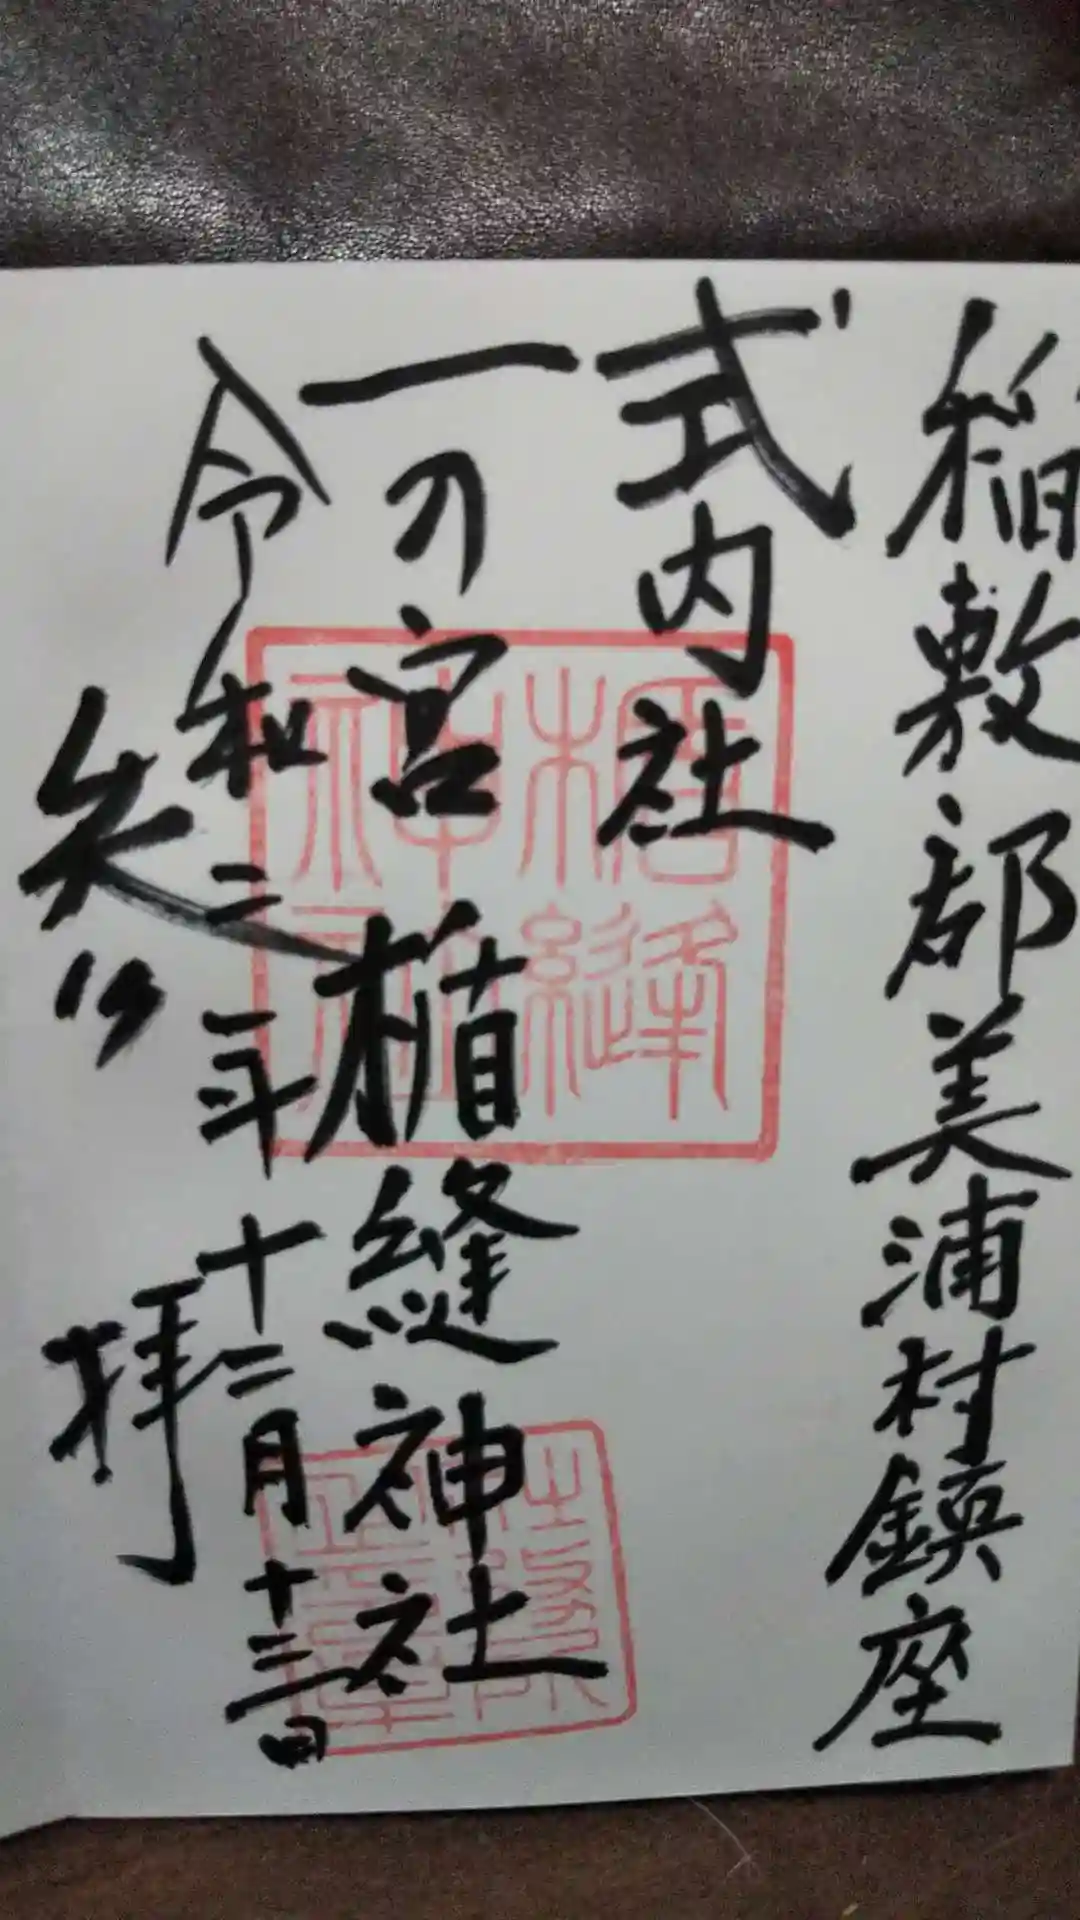 稲敷郡美浦村鎮座
式内社
一の宮 楯縫神社
令和二年十二月十三日
奉拝
楯縫
神社